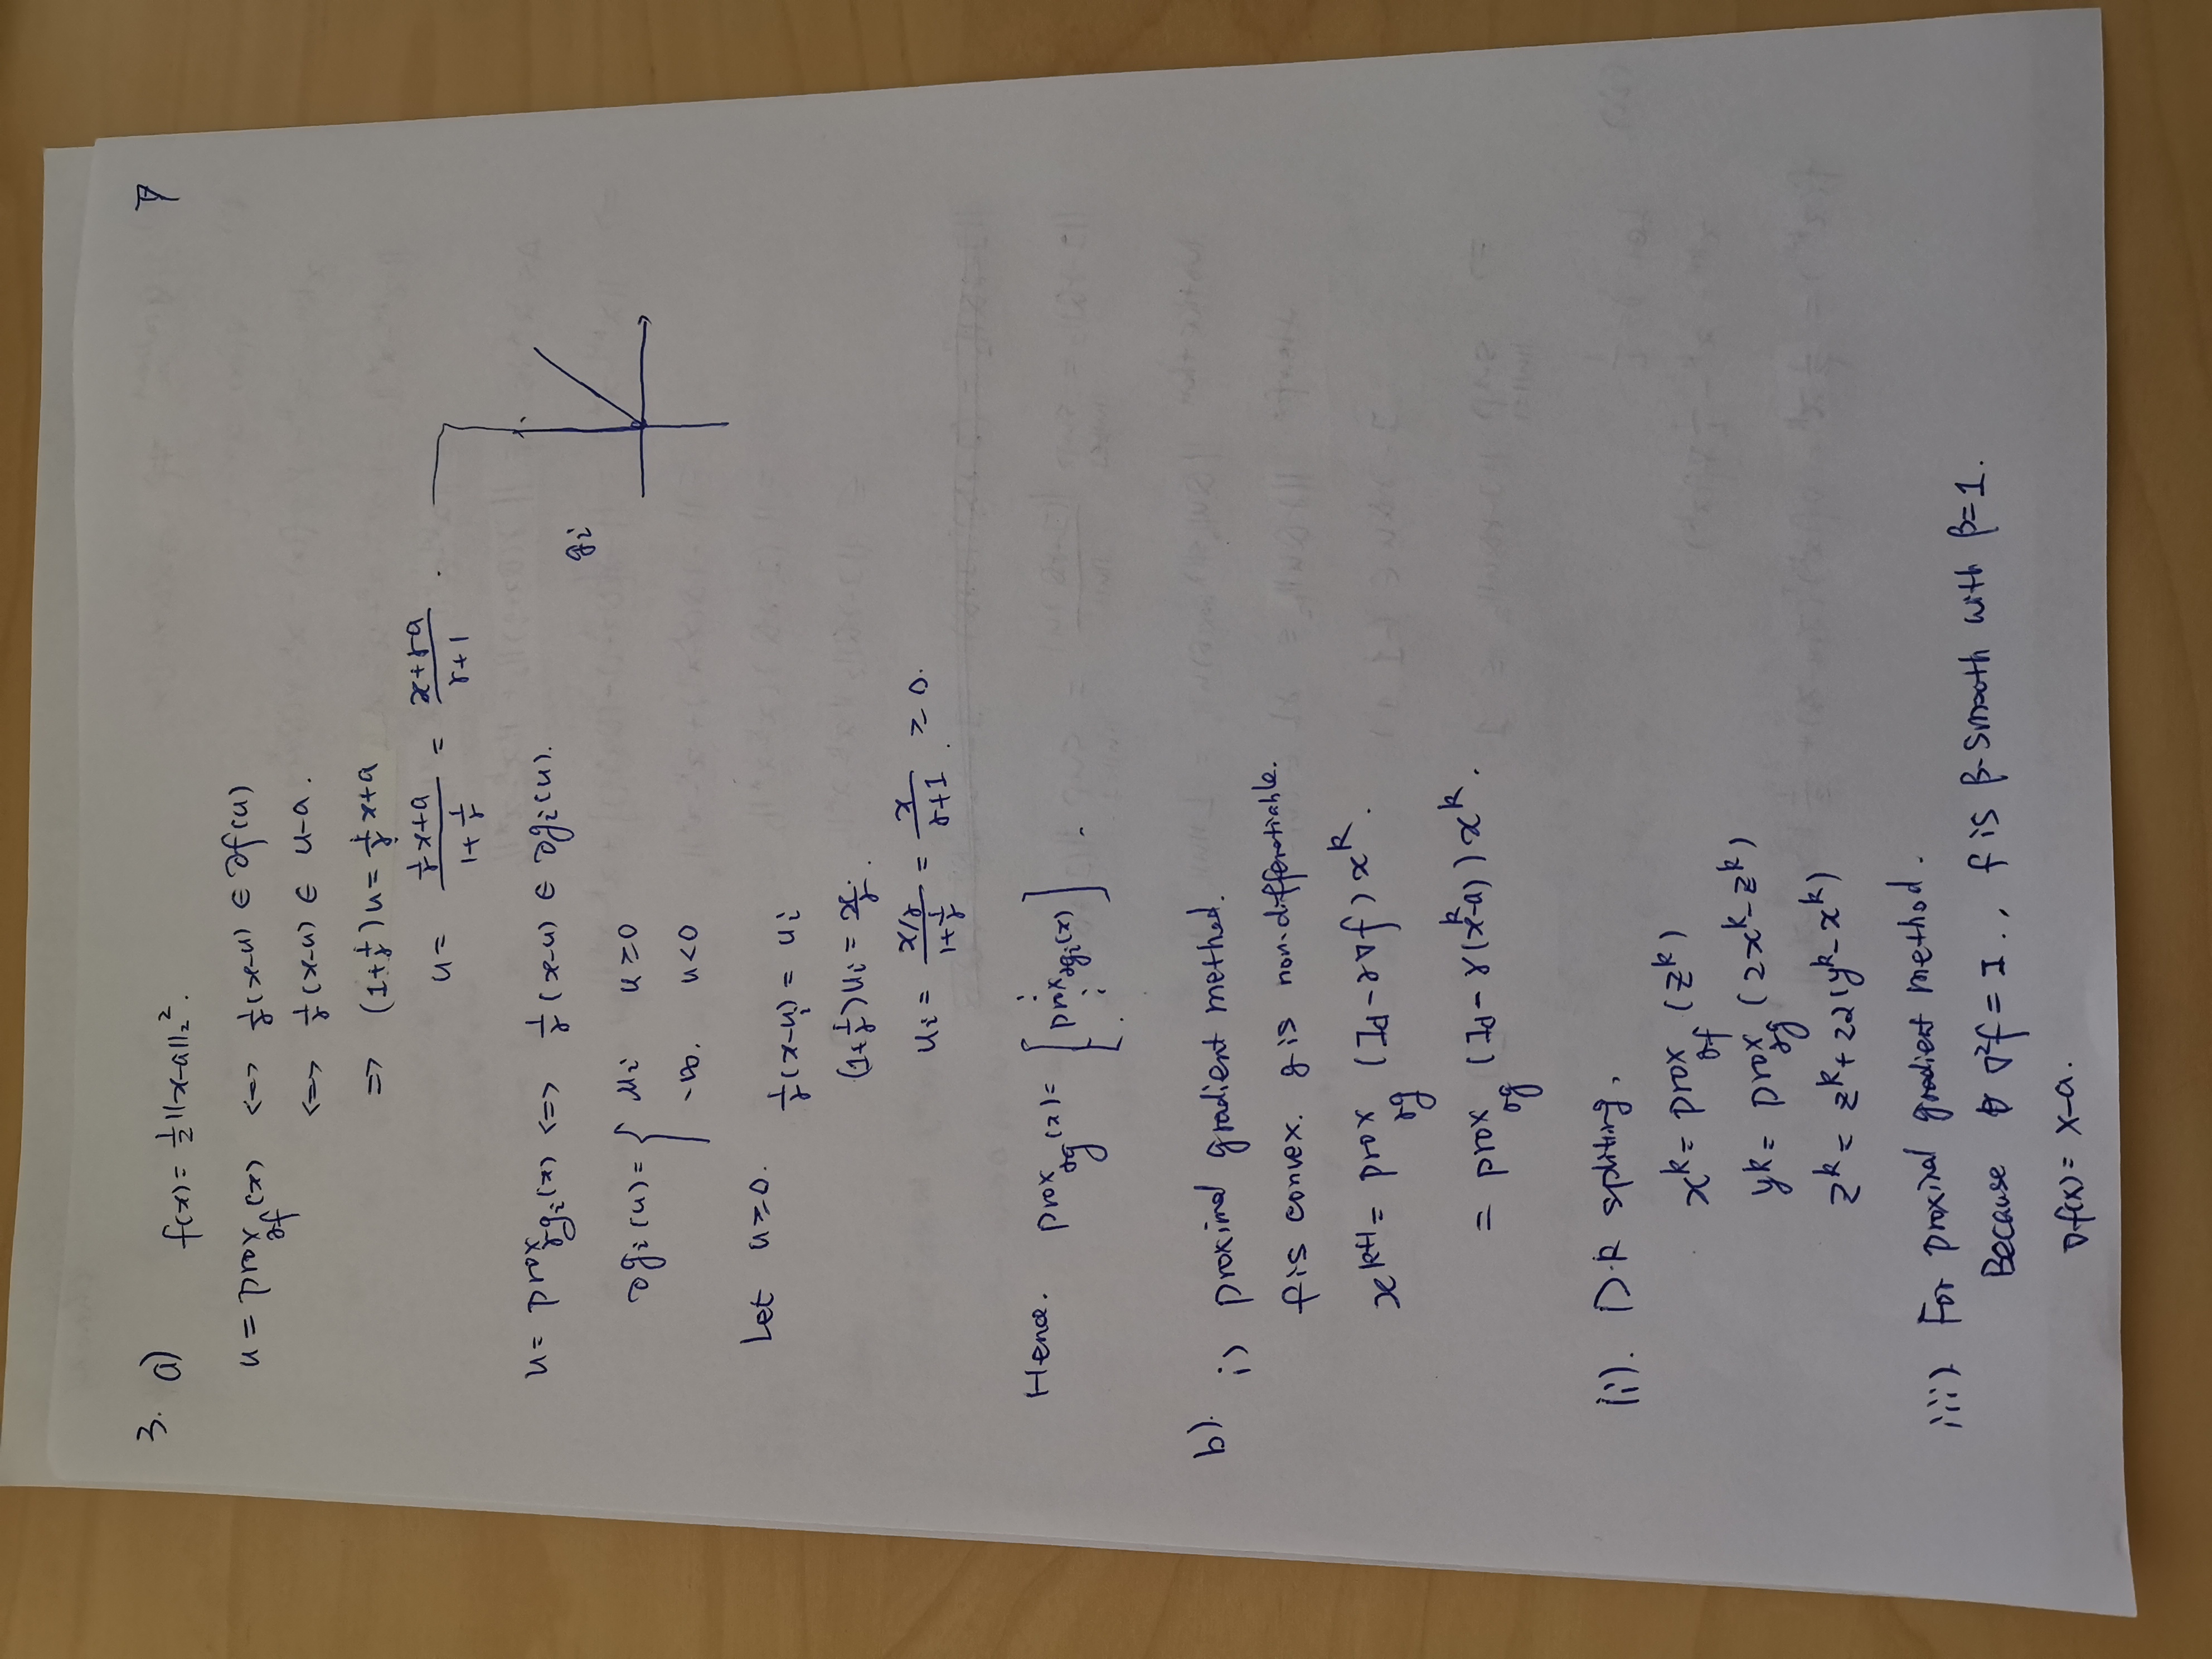 7
3. a) f(x) = ½||x-a||₂².
u = prox_γf(x) <=> 1/γ (x-u) ∈ ∂f(u)
<=> 1/γ (x-u) ∈ u-a.
=> (1+1/γ)u = 1/γ x+a
u = (1/γ x+a)/(1+1/γ) = (x+γa)/(γ+1) .
u = prox_γgi(x) <=> 1/γ (x-u) ∈ ∂gi(u).
gi
∂gi(u) = { ui u≥0
-∞. u<0
Let u≥0. 1/γ (x-ui) = ui
(1+1/γ)ui = x/γ.
ui = (x/γ)/(1+1/γ) = x/(γ+1) . ≥ 0.
Hence. prox_γg(x) = [ ⋮ prox_γgi(x) ⋮ ] .
b). i) proximal gradient method.
f is convex. g is non-differentiable.
x^{k+1} = prox_γg (Id-γ∇f) x^k .
= prox_γg (Id - γ(x^k-a)) x^k .
(ii). D.R splitting.
x^k = prox_γf (z^k)
y^k = prox_γg (2x^k - z^k)
z^k = z^k + 2α(y^k - x^k)
iii) For proximal gradient method.
Because ∇²f = I . , f is β-smooth with β=1.
∇f(x) = x-a.